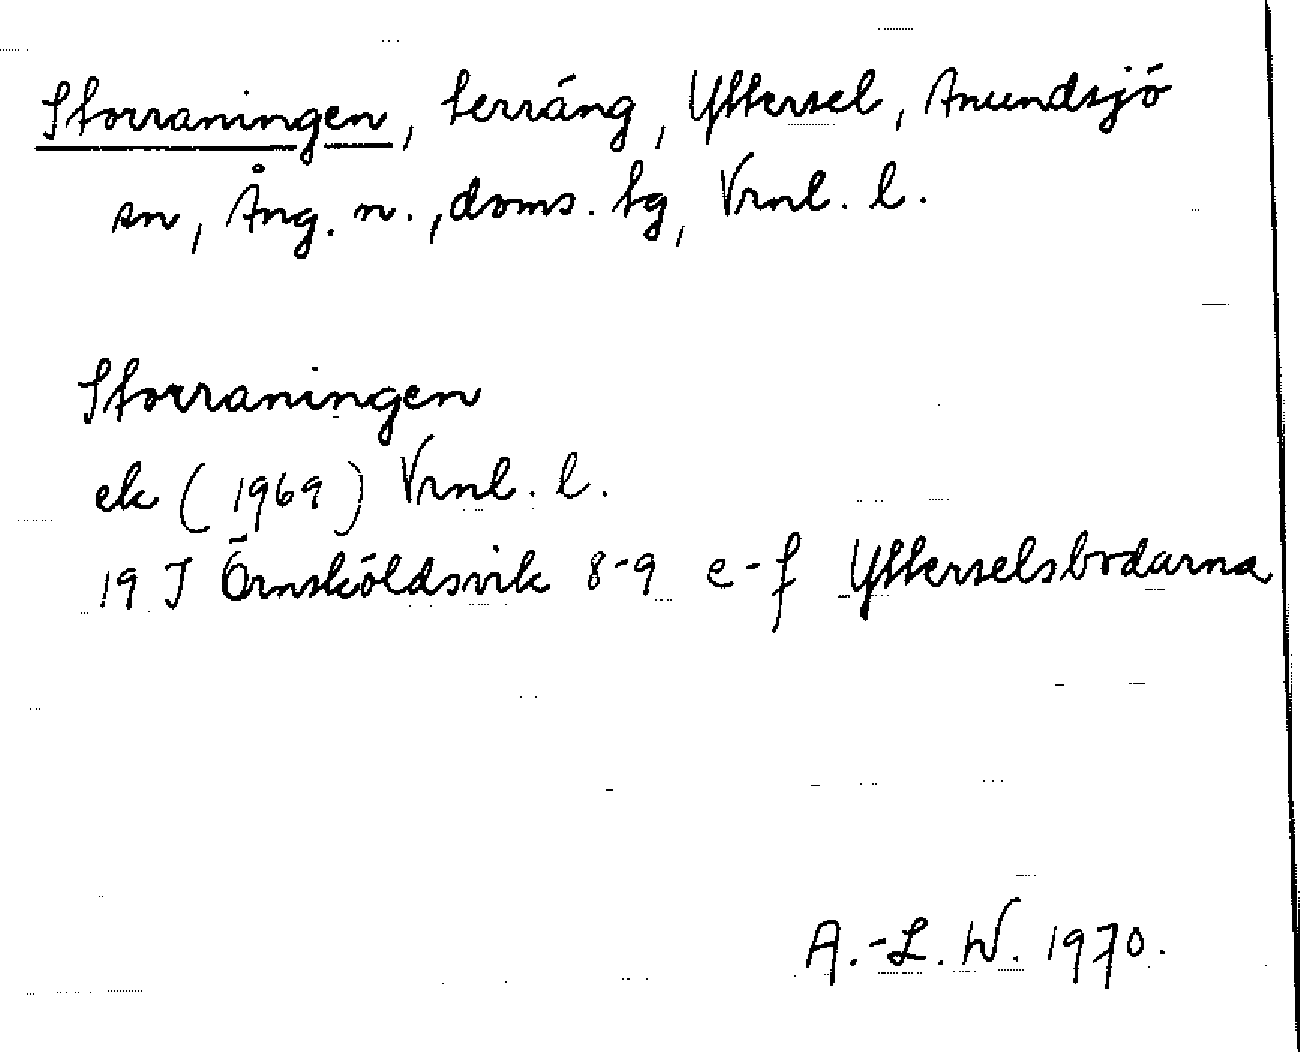 Storraningen, terräng, Yttersel, Anundsjö
sn, Ång. n., doms. tg, Vrnl. l.
Storraningen
ek (1969) Vrnl. l.
19 J Örnsköldsvik 8-9 e-f Ytterselsbodarna
A.-L. W. 1970.